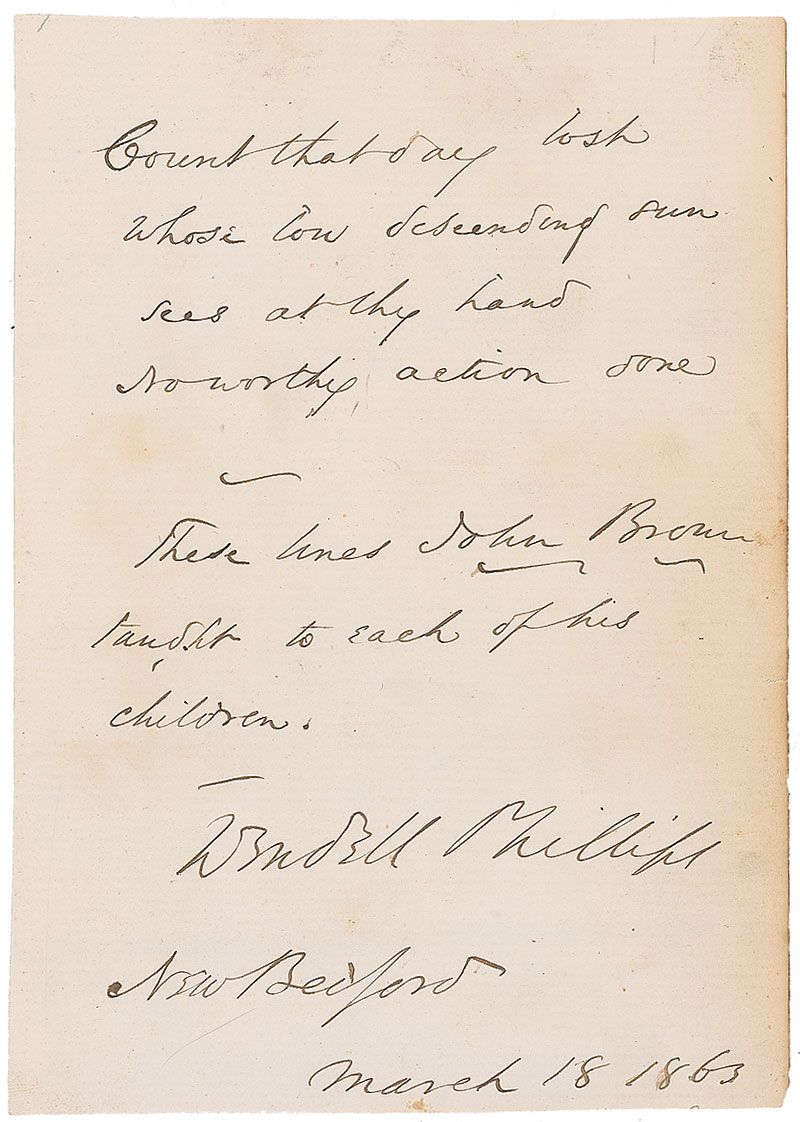 Count that day lost
Whose low descending sun
sees at thy hand
No worthy action done
These lines John Brown
taught to each of his
children.
Wendell Phillips
New Bedford
March 18 1863